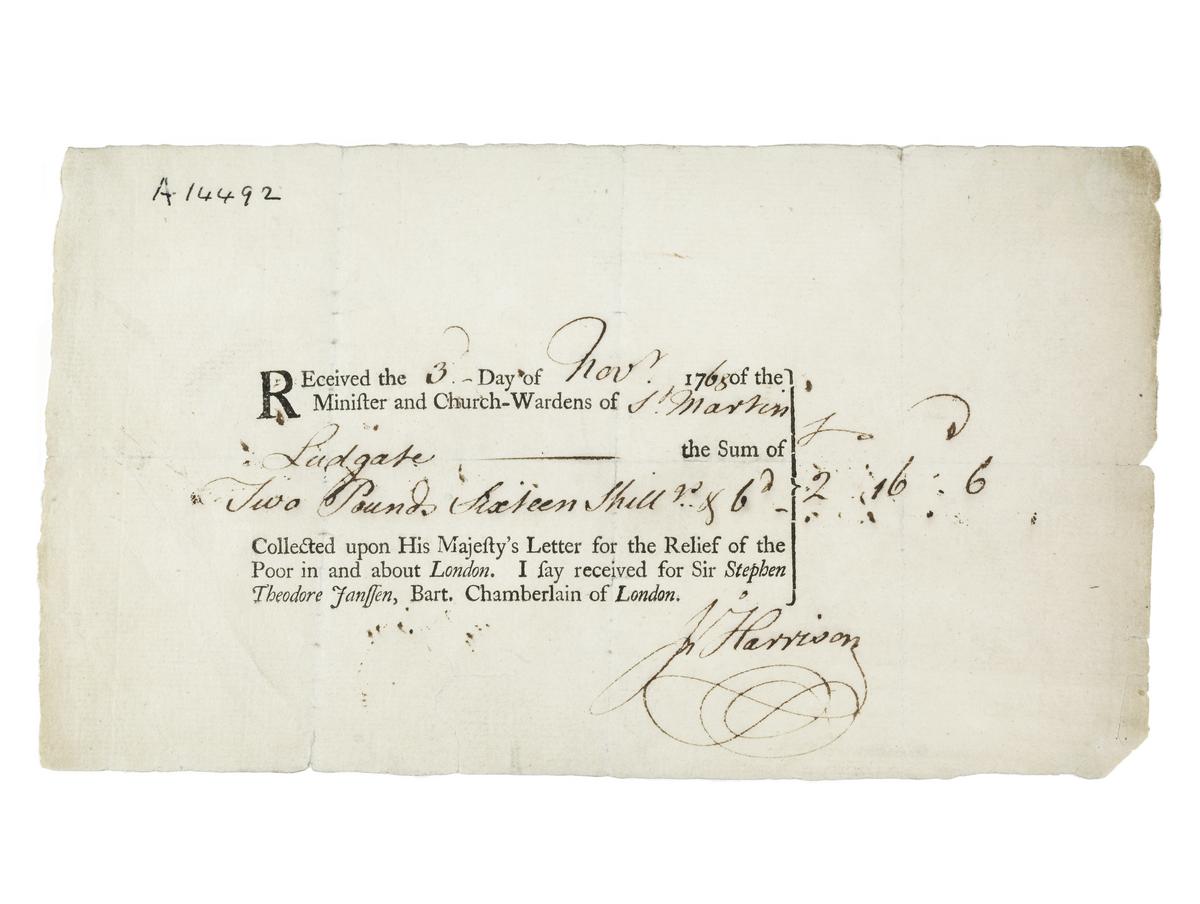 A 14492
REceived the 3d - Day of Novr. 1768 of the
Miniſter and Church-Wardens of St Martin
Ludgate the Sum of
£ s d
Two Pounds Sixteen Shillgs. & 6d - 2 : 16 : 6
Collected upon His Majeſty's Letter for the Relief of the
Poor in and about London. I ſay received for Sir Stephen
Theodore Janſſen, Bart. Chamberlain of London.
Jno Harrison